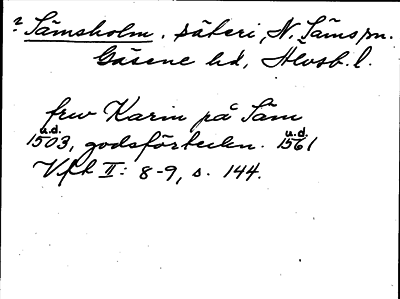 ? Sämsholm. säteri, N. Säms sn.
Gäsene hd, Älvsb. l.
frw Karin på Säm
u.d. u.d.
1503, godsförteckn. 1561
Vft II: 8-9, s. 144.